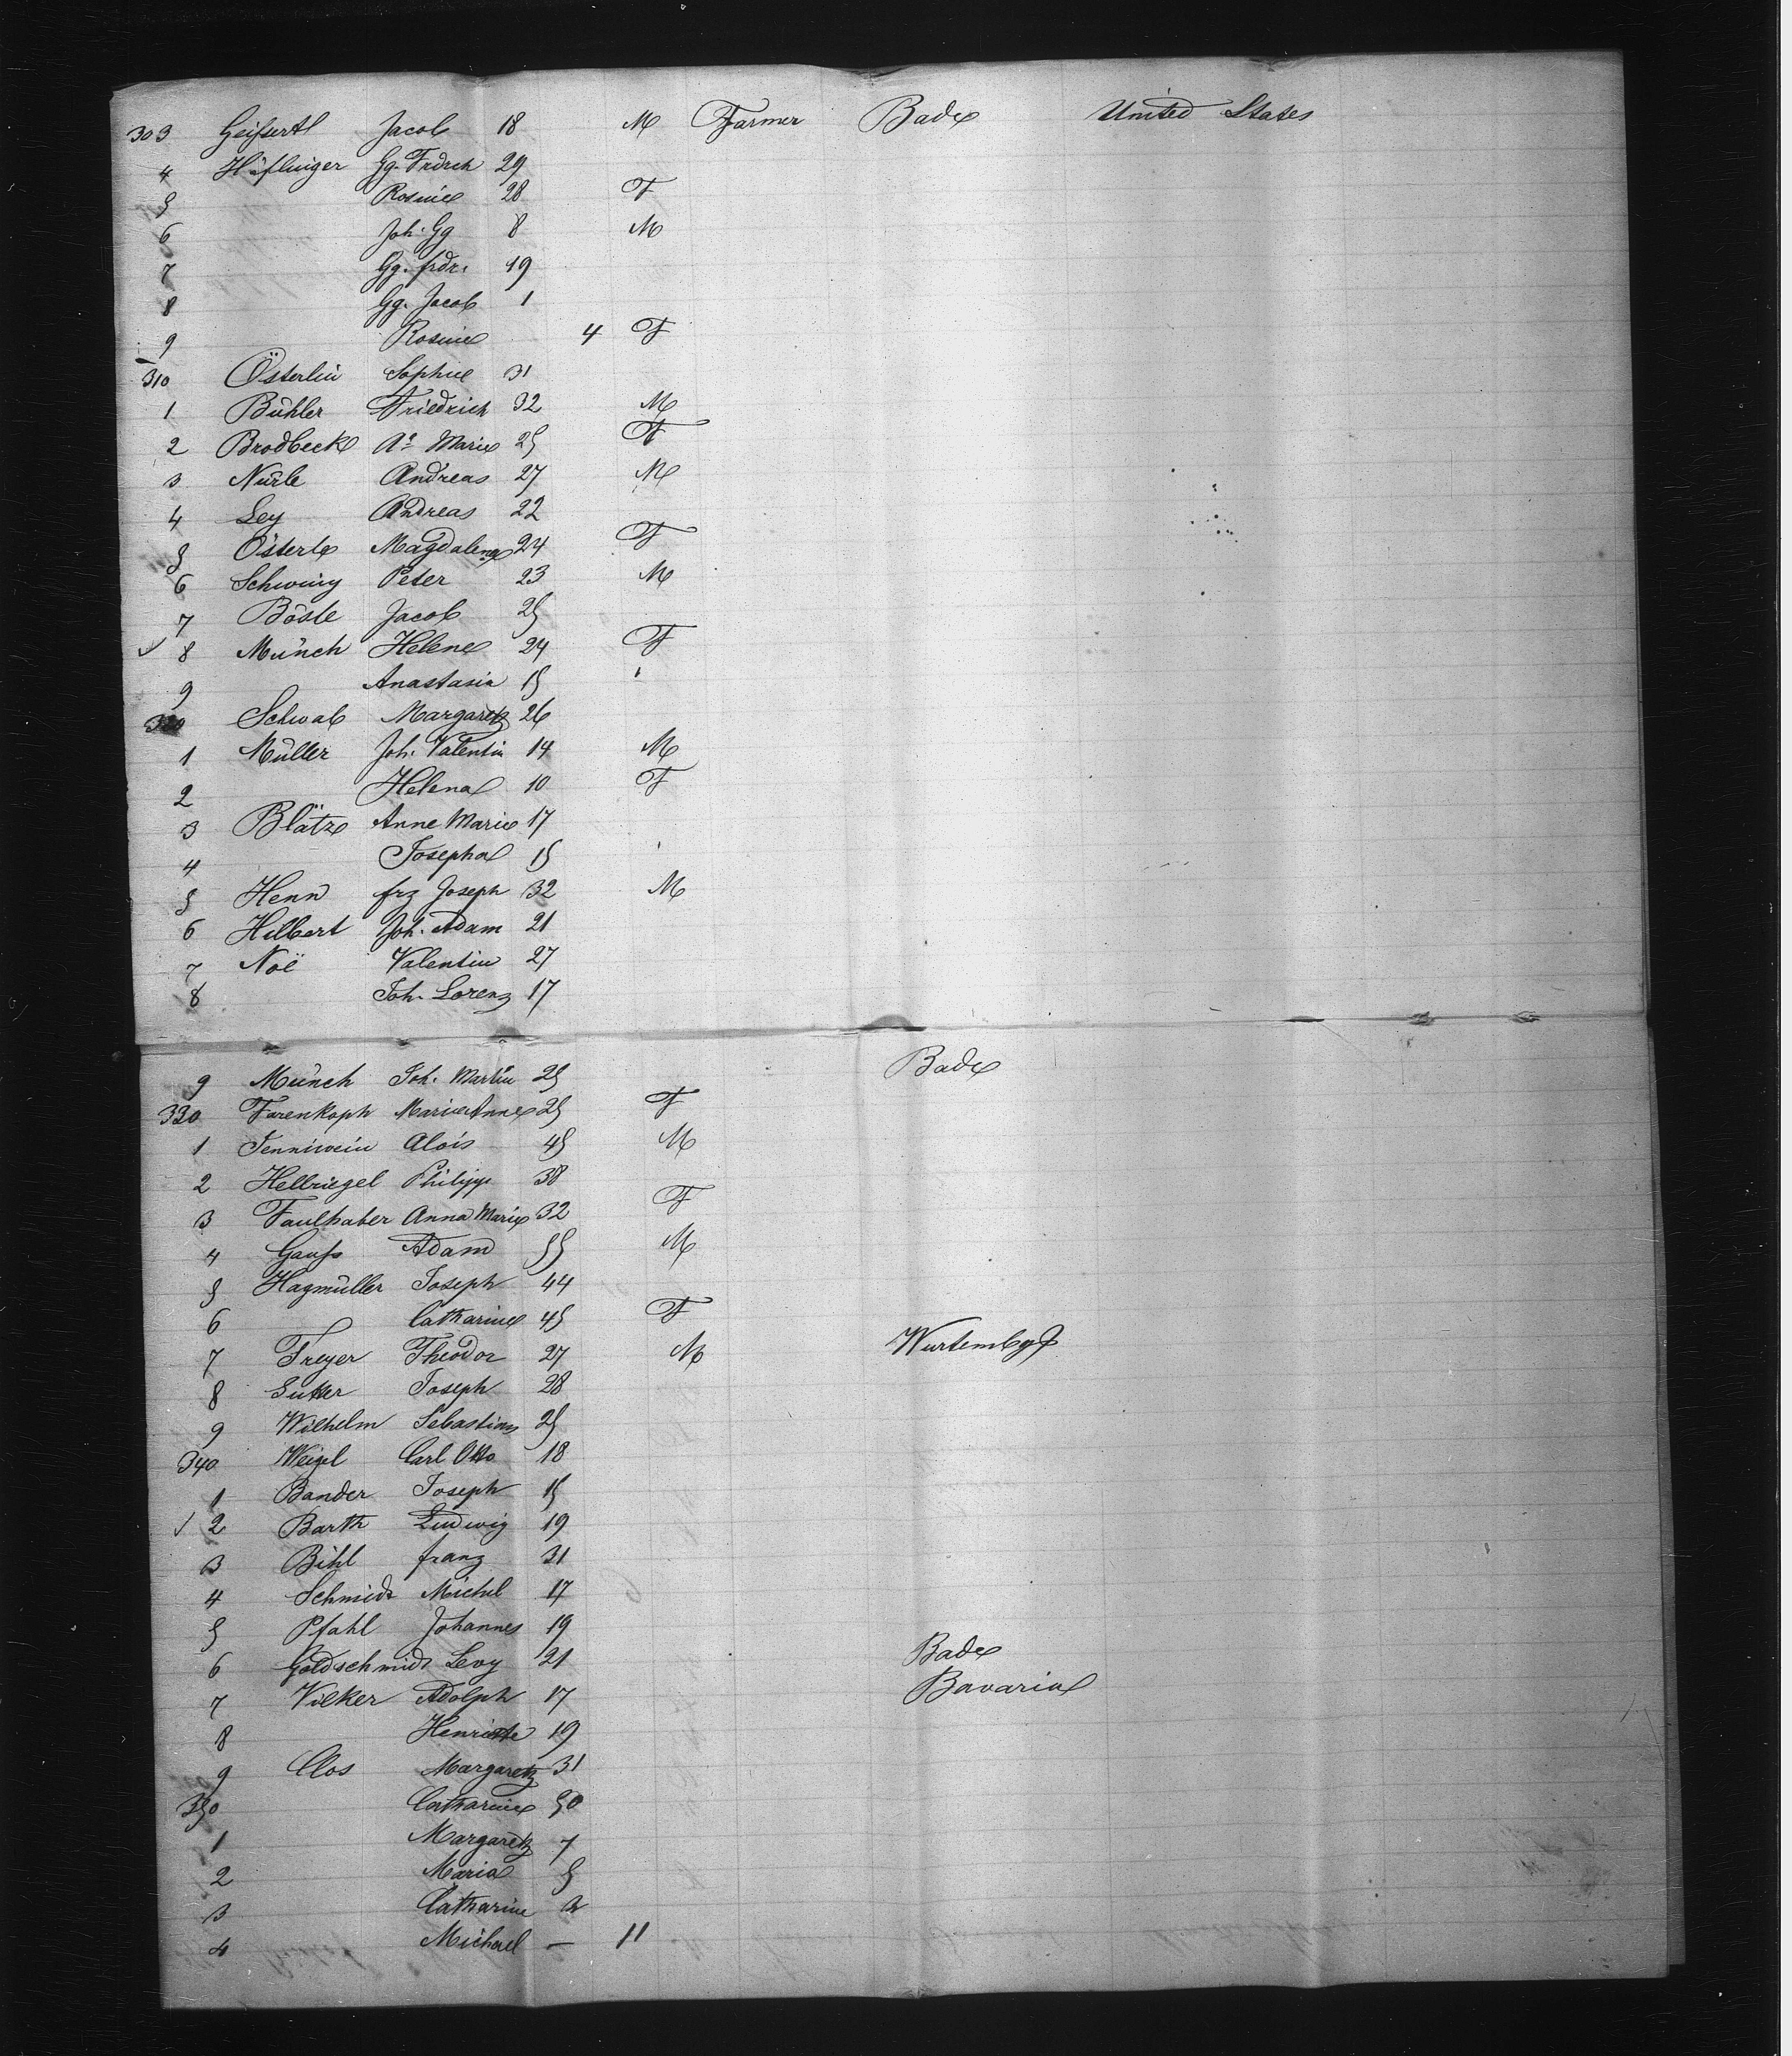 303 Geißert Jacob 18 M Farmer Bade United States
4 Höflinger Gg. Frdrch 29
5 Rosine 28 F
6 Joh. Gg 8 M
7 Gg. frdr. 19
8 Gg. Jacob 1
9 Rosine 4 F
310 Österlin Sophie 31
1 Bühler Friedrich 32 M
2 Brodbeck Aᵃ Marie 25 F
3 Nürle Andreas 27 M
4 Ley Andreas 22
5 Österle Magdalena 24 F
6 Schwing Peter 23 M
7 Bösle Jacob 25
8 Münch Helene 24 F
9 Anastasia 15
320 Schwab Margareth 26
1 Müller Joh. Valentin 14 M
2 Helena 10 F
3 Blätz Anne Marie 17
4 Josepha 15
5 Henn frz Joseph 32 M
6 Hilbert Joh. Adam 21
7 Noë Valentin 27
8 Joh. Lorenz 17
9 Münch Joh. Martin 25 Bade
330 Farenkoph Marie Anne 25 F
1 Jenniwein Alois 45 M
2 Hellriegel Philipp 38
3 Faulhaber Anna Marie 32 F
4 Gauß Adam 55 M
5 Hagmüller Joseph 44
6 Catharine 45 F
7 Freyer Theodor 27 M Wurtembg
8 Sutter Joseph 28
9 Wilhelm Sebastian 25
340 Weigel Carl Otto 18
1 Bander Joseph 15
2 Barth Ludwig 19
3 Bihl franz 31
4 Schmidt Michel 17
5 Pfahl Johannes 19
6 Goldschmidt Levy 21 Bade
7 Völker Adolph 17 Bavaria
8 Henriette 19
9 Clos Margareth 31
350 Catharine 50
1 Margareth 7
2 Maria 5
3 Catharine 2
4 Michael — 11